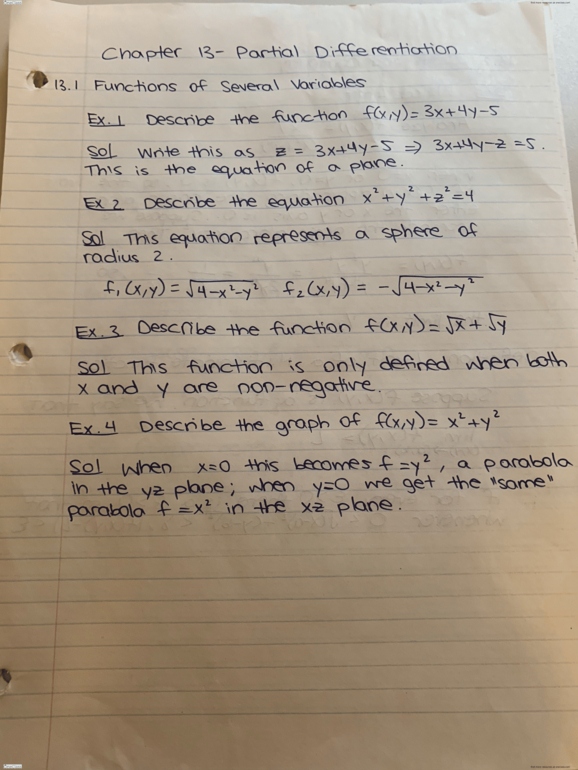 Chapter 13- Partial Differentiation
13.1 Functions of Several Variables
Ex. 1 Describe the function f(x,y)= 3x+4y-5
Sol Write this as z = 3x+4y-5 ⇒ 3x+4y-z =5.
This is the equation of a plane.
Ex 2 Describe the equation x²+y²+z²=4
Sol This equation represents a sphere of
radius 2.
f₁(x,y)=√4-x²-y² f₂(x,y) = -√4-x²-y²
Ex. 3 Describe the function f(x,y)=√x+√y
Sol This function is only defined when both
x and y are non-negative.
Ex. 4 Describe the graph of f(x,y)= x²+y²
Sol When x=0 this becomes f =y², a parabola
in the yz plane; when y=0 we get the "same"
parabola f =x² in the xz plane.